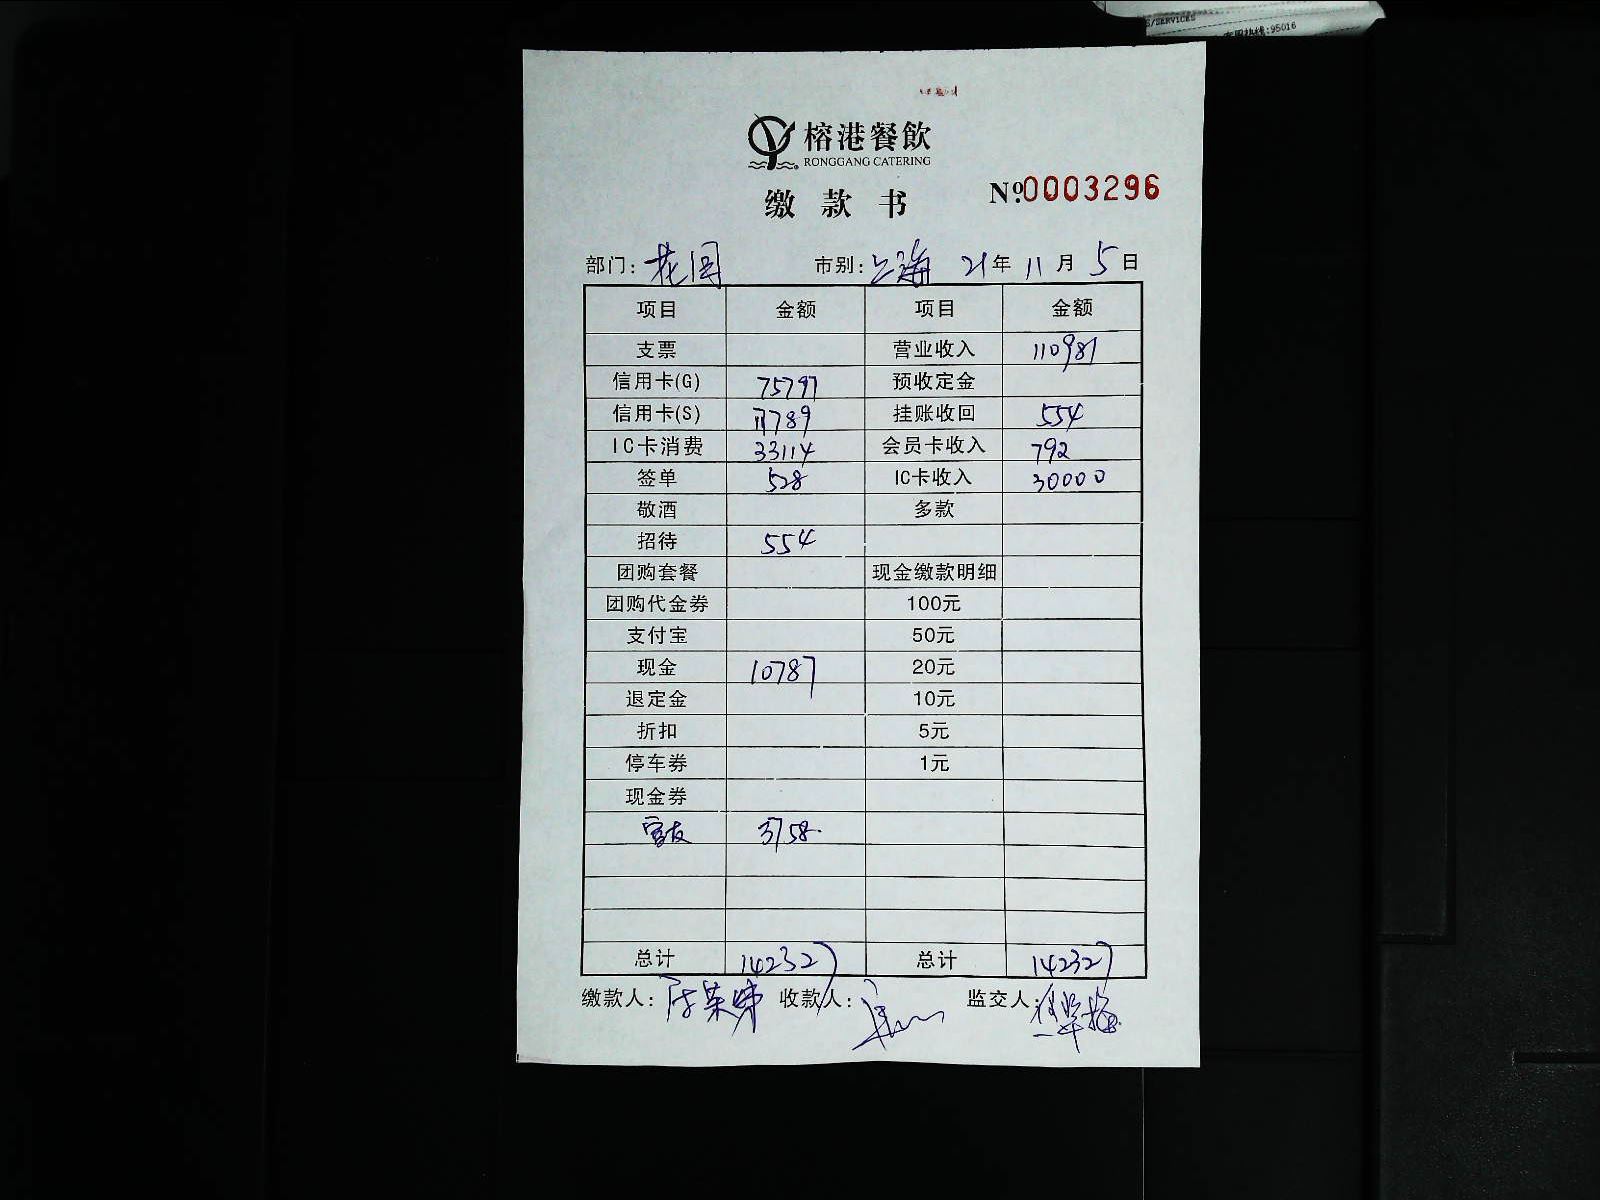 S/SERVICES
客服热线:95016
榕港餐飲
RONGGANG CATERING
缴款书 №0003296
部门: 花园 市别: 上海 21年11月5日
项目 金额 项目 金额
支票 营业收入 110981
信用卡(G) 75797 预收定金
信用卡(S) 17789 挂账收回 554
IC卡消费 33114 会员卡收入 792
签单 528 IC卡收入 30000
敬酒 多款
招待 554
团购套餐 现金缴款明细
团购代金券 100元
支付宝 50元
现金 10787 20元
退定金 10元
折扣 5元
停车券 1元
现金券
3758
总计 142327 总计 142327
缴款人: 收款人: 监交人: